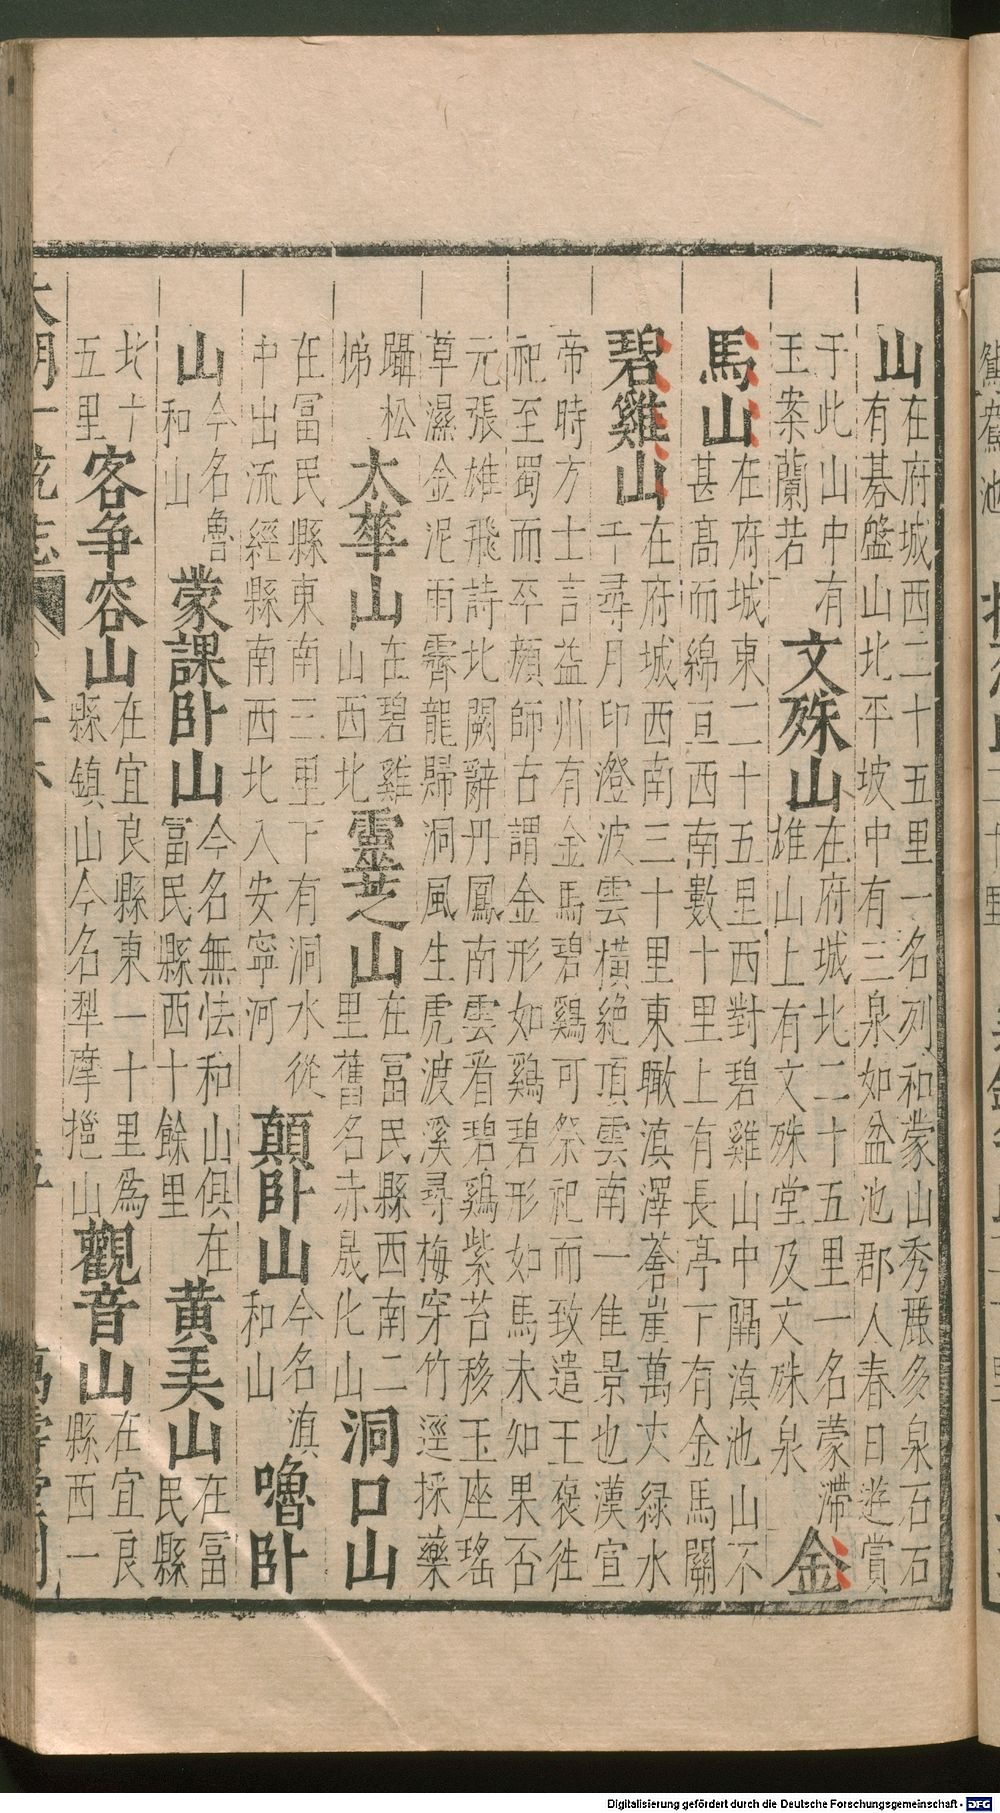 山在府城西二十五里一名列和蒙山秀麗多泉石石有碁盤山北平坡中有三泉如盆池郡人春日遊賞
于此山中有玉案蘭若文殊山在府城北二十五里一名蒙滯雄山上有文殊堂及文殊泉金
馬山在府城東二十五里西對碧雞山中隔滇池山不甚高而綿亘西南數十里上有長亭下有金馬關
碧雞山在府城西南三十里東瞰滇澤蒼崖萬丈綠水千尋月印澄波雲橫絶頂雲南一佳景也漢宣
帝時方士言益州有金馬碧鷄可祭祀而致遣王褒徃祀至蜀而卒顔師古謂金形如鷄碧形如馬未知果否
元張雄飛詩北闕辭丹鳳南雲看碧鷄紫苔移玉座瑤草濕金泥雨霽龍歸洞風生虎渡溪尋梅穿竹逕採藥
躡松梯太華山在碧雞山西北靈芝山在富民縣西南二里舊名赤晟化山洞口山
在富民縣東南三里下有洞水從中出流經縣南西北入安寧河顛卧山今名滇和山嚕卧
山今名魯和山蒙課卧山今名無怯和山俱在富民縣西十餘里黄美山在富民縣
北十五里客争容山在宜良縣東一十里為縣镇山今名犁摩拶山觀音山在宜良縣西一
大明一統志 萬壽堂刊
Digitalisierung gefördert durch die Deutsche Forschungsgemeinschaft - DFG